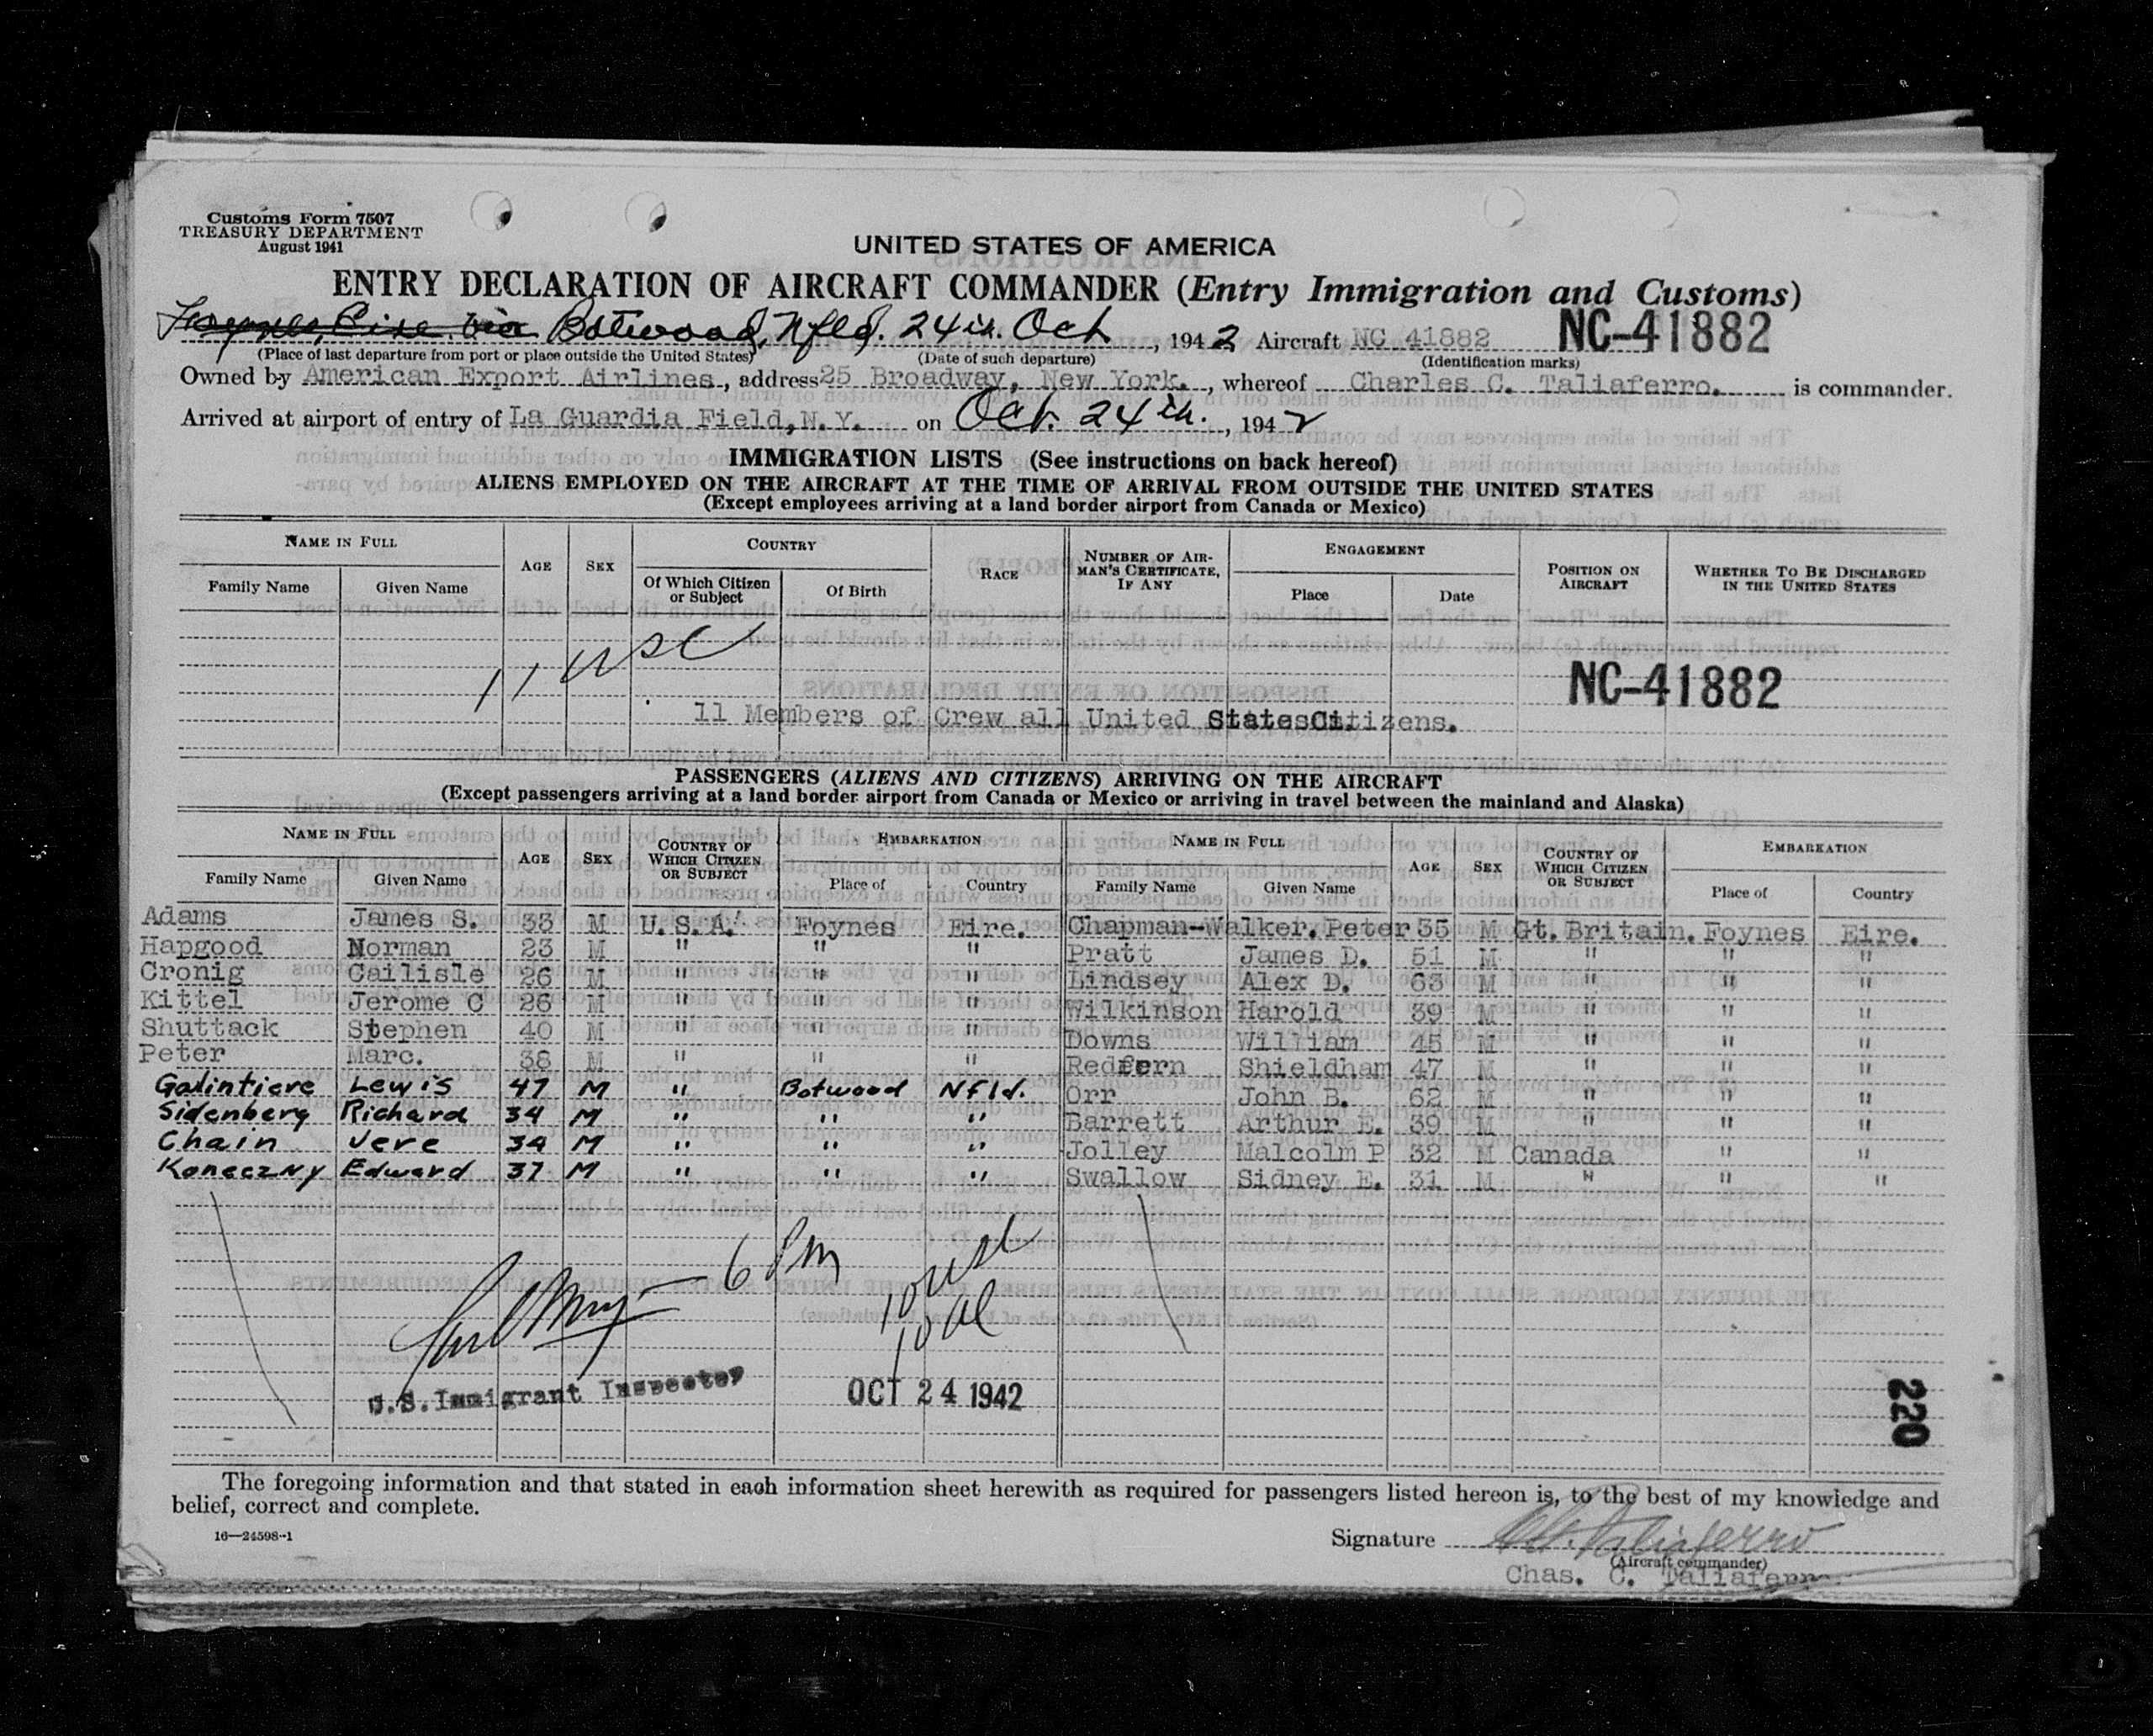 Customs Form 7507
TREASURY DEPARTMENT
August 1941
UNITED STATES OF AMERICA
ENTRY DECLARATION OF AIRCRAFT COMMANDER (Entry Immigration and Customs)
Foynes, Eire via Botwood, Nfld. 24th Oct, 1942 Aircraft NC 41882 NC-41882
(Place of last departure from port or place outside the United States) (Date of such departure) (Identification marks)
Owned by American Export Airlines, address 25 Broadway, New York., whereof Charles C. Taliaferro. is commander.
Arrived at airport of entry of La Guardia Field, N.Y. on Oct. 24th., 1942
IMMIGRATION LISTS (See instructions on back hereof)
ALIENS EMPLOYED ON THE AIRCRAFT AT THE TIME OF ARRIVAL FROM OUTSIDE THE UNITED STATES
(Except employees arriving at a land border airport from Canada or Mexico)
NAME IN FULL AGE SEX COUNTRY RACE NUMBER OF AIRMAN'S CERTIFICATE, IF ANY ENGAGEMENT POSITION ON AIRCRAFT WHETHER TO BE DISCHARGED IN THE UNITED STATES
Family Name Given Name Of Which Citizen or Subject Of Birth Place Date
11 USC
NC-41882
11 Members of Crew all United States Citizens.
PASSENGERS (ALIENS AND CITIZENS) ARRIVING ON THE AIRCRAFT
(Except passengers arriving at a land border airport from Canada or Mexico or arriving in travel between the mainland and Alaska)
NAME IN FULL AGE SEX COUNTRY OF WHICH CITIZEN OR SUBJECT EMBARKATION NAME IN FULL AGE SEX COUNTRY OF WHICH CITIZEN OR SUBJECT EMBARKATION
Family Name Given Name Place of Country Family Name Given Name Place of Country
Adams James S. 33 M U.S.A. Foynes Eire. Chapman-Walker. Peter 35 M Gt. Britain. Foynes Eire.
Hapgood Norman 23 M " " " Pratt James D. 51 M " " "
Cronig Cailisle 26 M " " " Lindsey Alex D. 63 M " " "
Kittel Jerome C 26 M " " " Wilkinson Harold 39 M " " "
Shuttack Stephen 40 M " " " Downs William 45 M " " "
Peter Marc. 38 M " " " Redfern Shieldham 47 M " " "
Galintiere Lewis 47 M " Botwood Nfld. Orr John B. 62 M " " "
Sidenberg Richard 34 M " " " Barrett Arthur E. 39 M " " "
Chain Vere 34 M " " " Jolley Malcolm P 32 M Canada " "
Koneczny Edward 37 M " " " Swallow Sidney E. 31 M " " "
6 Pm
10 USC
10 al
U.S. Immigrant Inspector
OCT 24 1942
220
The foregoing information and that stated in each information sheet herewith as required for passengers listed hereon is, to the best of my knowledge and
belief, correct and complete.
16—24598-1
Signature
(Aircraft commander)
Chas. C. Taliaferro.